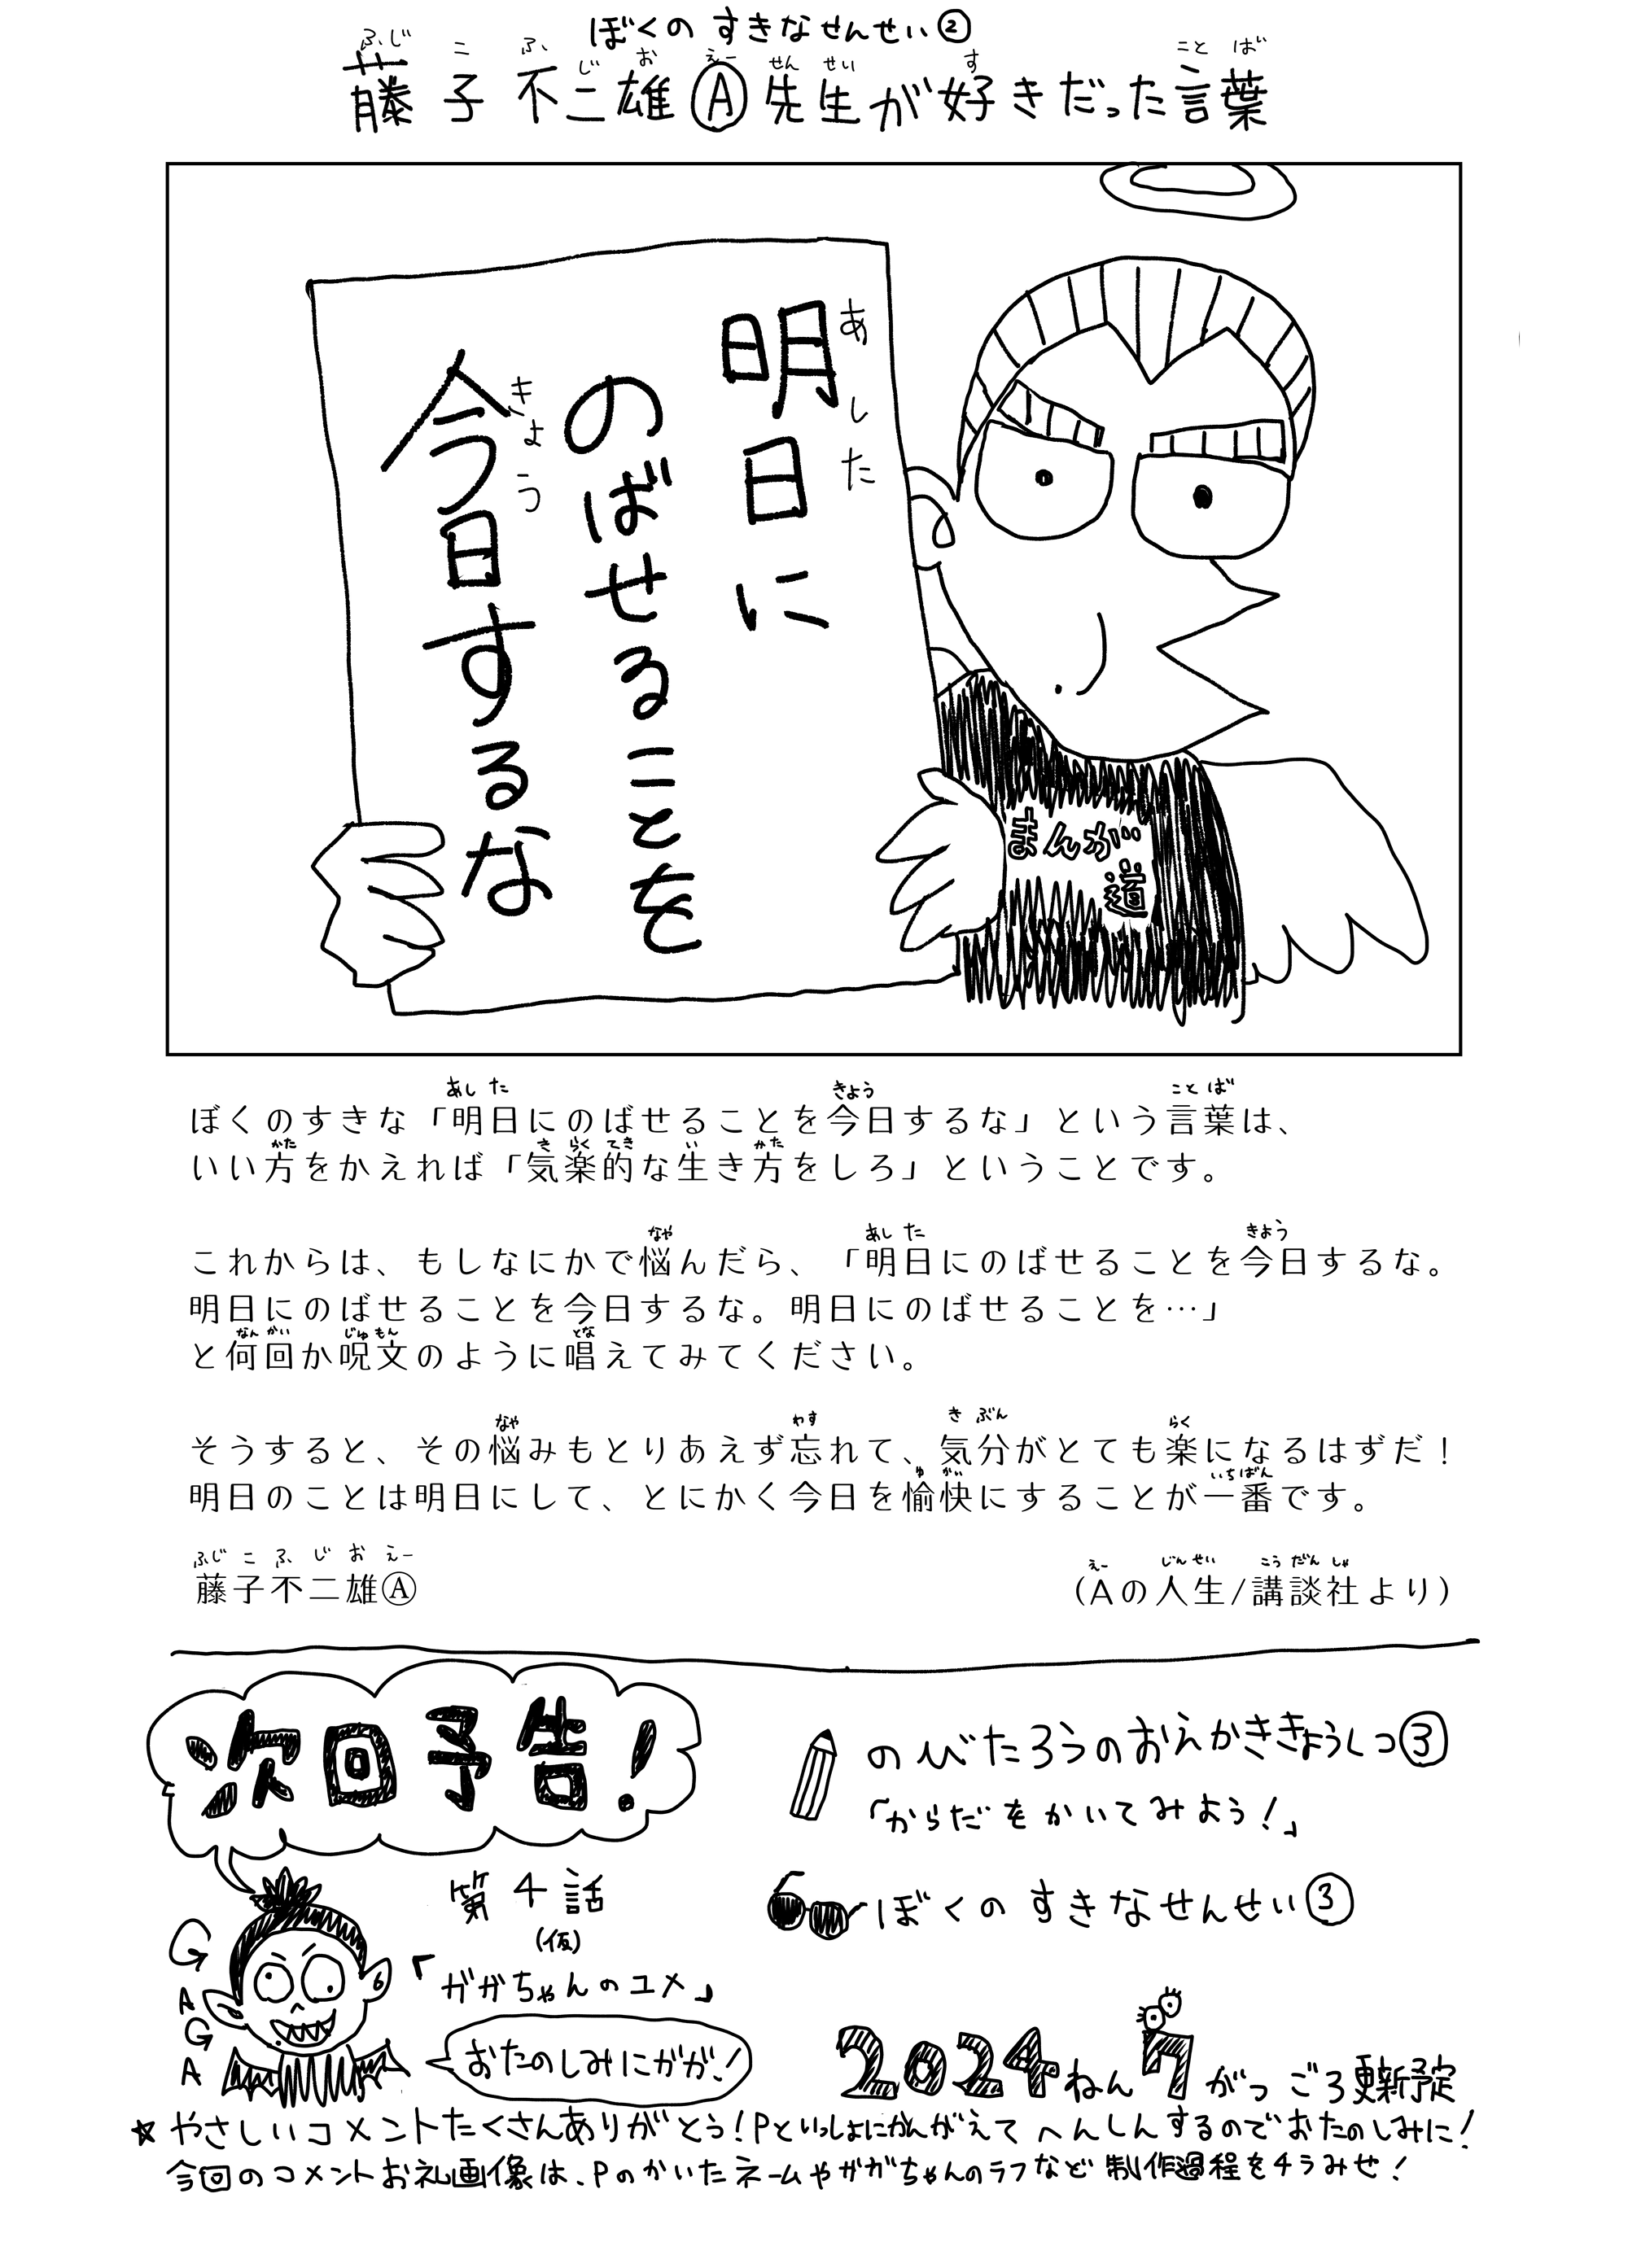 ぼくの すきなせんせい②
藤子不二雄Ⓐ先生が好きだった言葉
ふじ こ ふ じ お えー せん せい す こと ば
明日に
あした
のばせることを
今日するな
きょう
まんが
道
あした きょう ことば
ぼくのすきな「明日にのばせることを今日するな」という言葉は、
かた き らくてき い かた
いい方をかえれば「気楽的な生き方をしろ」ということです。
なや あした きょう
これからは、もしなにかで悩んだら、「明日にのばせることを今日するな。
明日にのばせることを今日するな。明日にのばせることを…」
なんかい じゅもん とな
と何回か呪文のように唱えてみてください。
なや わす き ぶん らく
そうすると、その悩みもとりあえず忘れて、気分がとても楽になるはずだ！
ゆ かい いちばん
明日のことは明日にして、とにかく今日を愉快にすることが一番です。
ふじ こ ふ じ お えー
藤子不二雄Ⓐ
えー じんせい こうだんしゃ
（Aの人生/講談社より）
次回予告！
のびたろうのおえかききょうしつ③
「からだをかいてみよう！」
第4話
(仮)
「ががちゃんのユメ」
ぼくの すきなせんせい③
GAGA
おたのしみにガガ！
2024ねん7がつごろ更新予定
☆やさしいコメントたくさんありがとう！Pといっしょにかんがえてへんしんするのでおたのしみに！
今回のコメントお礼画像は、Pのかいたネームやガガちゃんのラフなど制作過程をチラみせ！